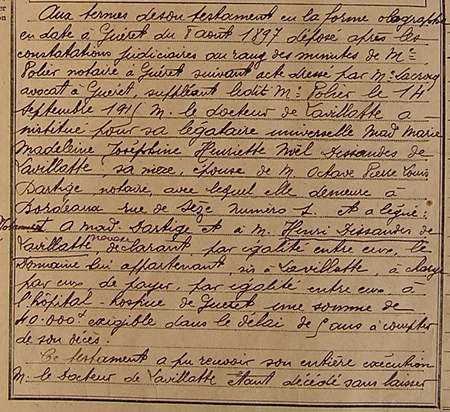 Aux termes de son testament en la forme olographe
en date à Guéret du 8 août 1897 déposé après les
constatations judiciaires au rang des minutes de Me
Polier notaire à Guéret suivant acte dressé par Me Lacroix
avocat à Guéret, suppléant ledit Me Polier le 14
septembre 1915 M. le docteur de Lavillatte a
institué pour sa légataire universelle Mad. Marie
Madeleine Joséphine Henriette Noël Dissandes de
Lavillatte, sa nièce, épouse de M. Octave Pierre Louis
Dartige notaire, avec lequel elle demeure à
Bordeaux rue de Sèze numéro 1. et a légué:
Testament A mad. Dartige et à M. Henri Dissandes de
Lavillatte, déclarant, par égalité entre eux, le
Domaine lui appartenant, sis à Lavillatte, à charge
par eux de payer, par égalité entre eux à
l'hôpital-hospice de Guéret une somme de
40.000f exigible dans le délai de 5 ans à compter
de son décès.
Ce testament a pu recevoir son entière exécution
M. le docteur de Lavillatte étant décédé sans laisser